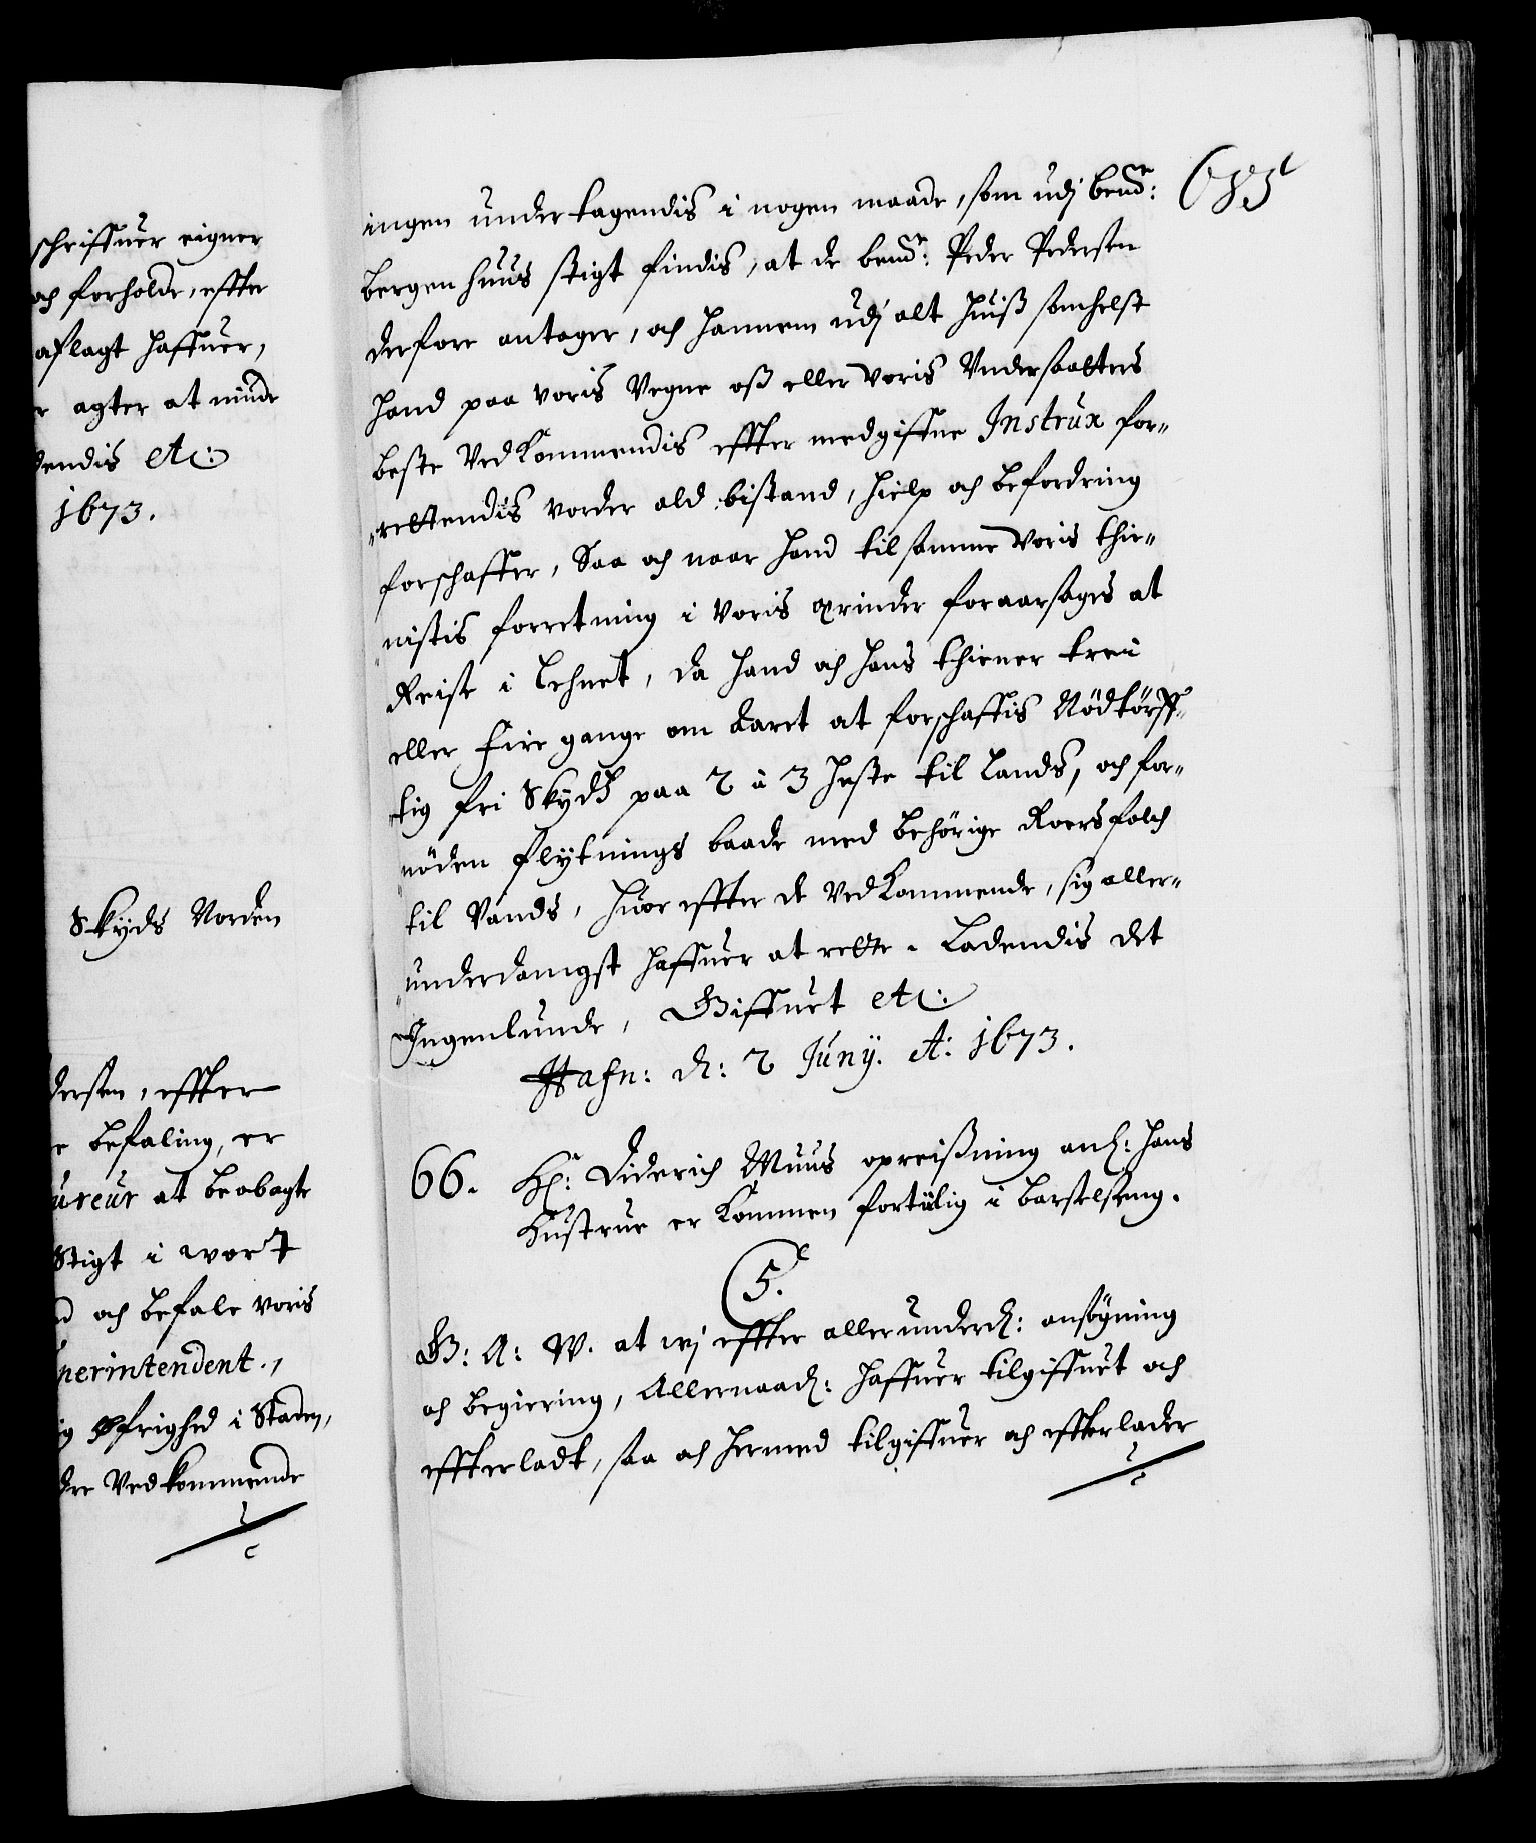 schriffuer eigner
och forholde, effter
aflagt haffuer,
r agter at minde
dendis etc:
1673.
Skyds Norden
dersen, effter
e befaling, er
ureur at beobagte
Stigt i wort
d och befale voris
perintendent.,
ig Øfrighed i Staden,
dre Vedkommende
ingen undertagendis i nogen maade, som udj bemde:
bergenhuus stigt findis, at de bemde: Peder Pedersen
derfore antager, och hannem udj alt huiß somhelst
hand paa voris Vegne oß eller voris Undersaatters
beste Vedkommendis effter medgiffne Instrux for-
rettendis vorder ald bistand, hielp och befordring
forschaffer, Saa och naar hand til samme voris thie-
nistis forretning i voris ærinder foraarsages at
Reise i Lehnet, da hand och hans thiener trei
eller fire gange om Aaret at forschaffis Nödtörff-
tig fri Skyds paa 2 à 3 heste til lands, och for-
nöden flytnings baade med behörige Roersfolch
til Vands, huor effter de Vedkommende, sig aller-
underdanigst haffuer at rette. Ladendis det
Ingenlunde, Giffuet etc:
Hafn: d: 2 Junÿ. A: 1673.
66. Hr: Diderich Muus opreißning anl: hans
Hustrue er kommen fortilig i barselseng.
C5.
G: A: W. at wj effter allerunderd: ansögning
och begiering, Allernaad: haffuer tilgiffuet och
effterladt, saa och hermed tilgiffuer och effterlader